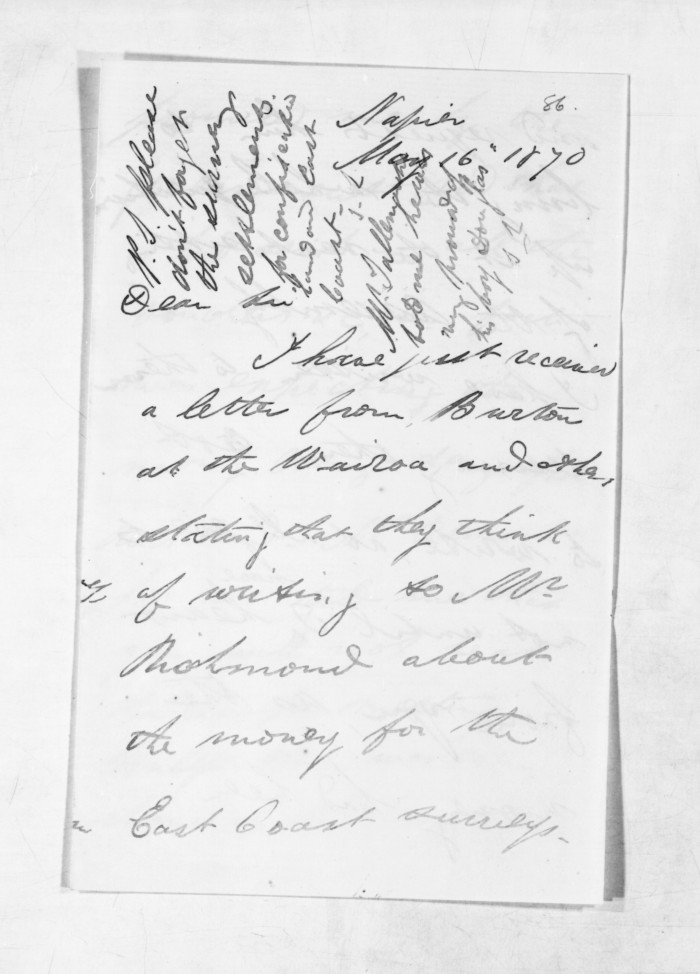 86.
Napier
May 16" 1870
P.S. please
don't forget
the survey
settlements
for confiscated
land on East
Coast
S. L
told me he
my
his boy Douglas
S L
Dear Sir
I have just received
a letter from Burton
at the Wairoa and others
stating that they think
of writing to Mr
Richmond about
the money for the
East Coast surveys.